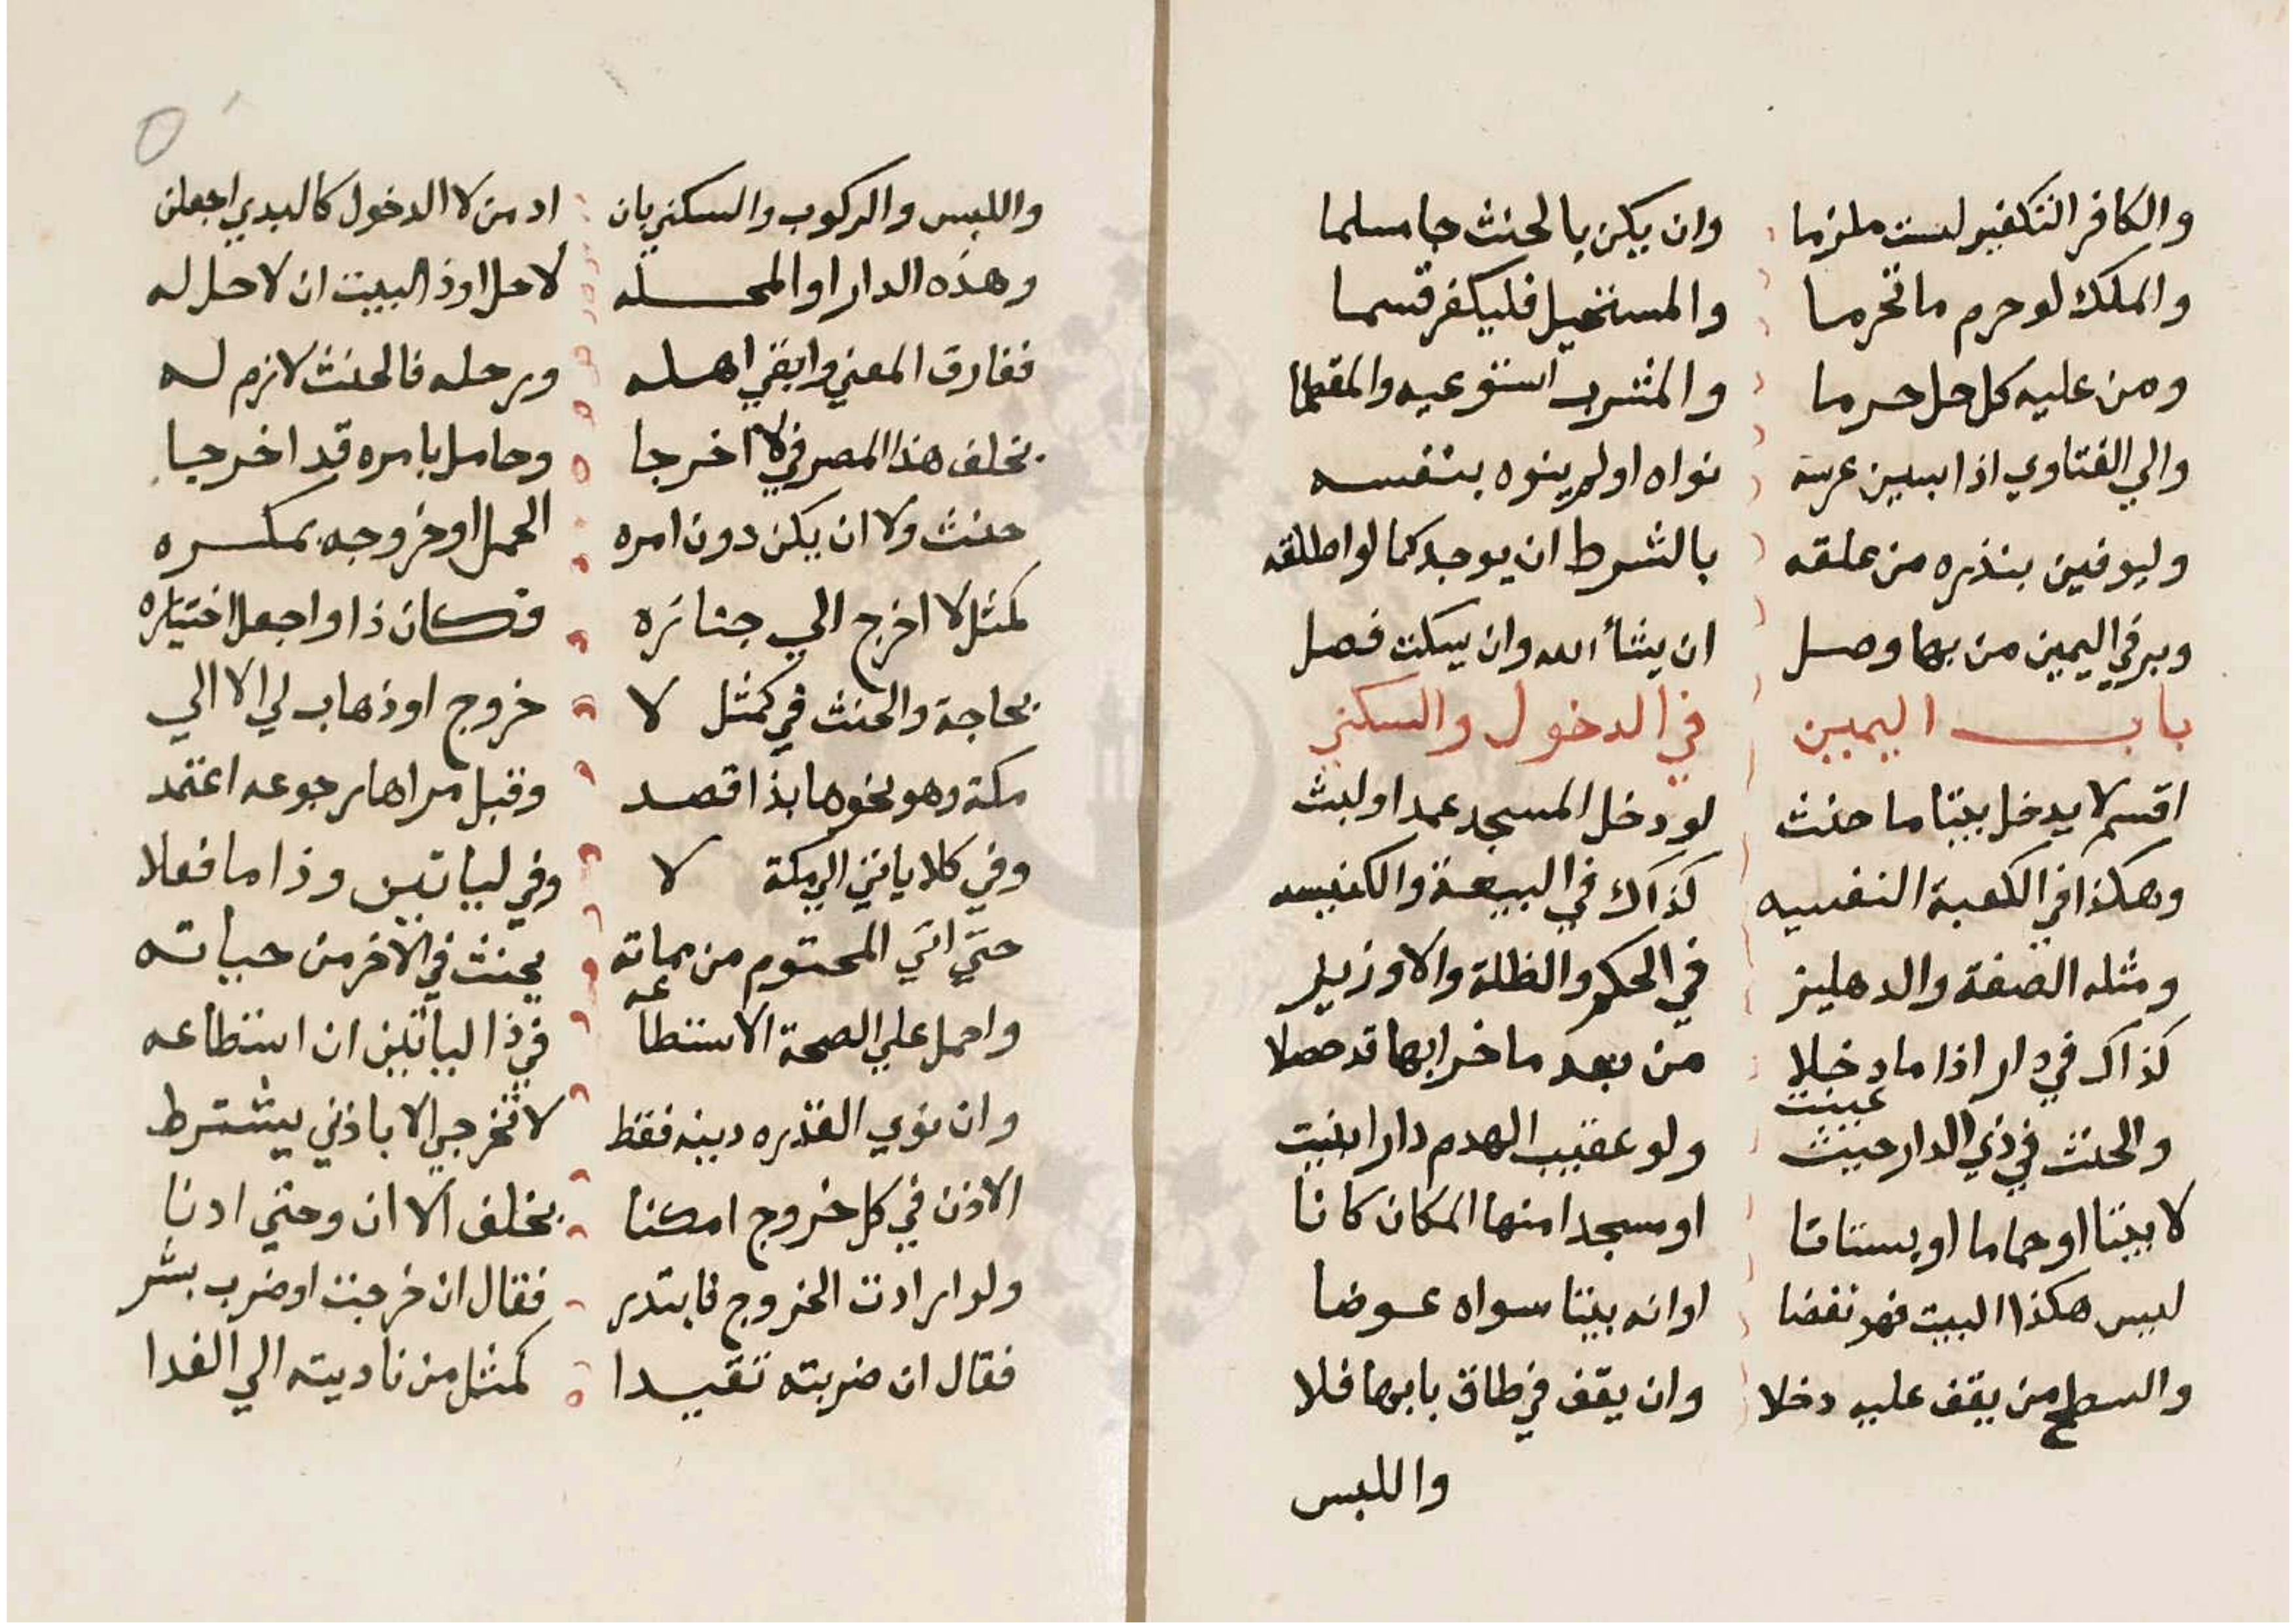 والكافر التكفير لست ملزما وان يكن بالحنث جا مسلما
والملك لو حرم ما تحرما والمستحيل فليكفر قسما
ومن عليه كل حل حرما والمشرب استوعبه والمقطما
والي الفتاوي اذا ببين عرسه نواه او لم ينوه بنفسه
وليوفين بنذره من علقه بالشرط ان يوجد كما لو اطلقه
وبر في اليمين من بها وصل ان يشأ الله وان يسكت فصل
باب اليمين في الدخول والسكني
اقسم لا يدخل بيتا ما حنث لو دخل المسجد عمدا ولبث
وهكذا في الكعبة النفسيه كذاك في البيعة والكنيسه
ومثله الصفة والدهليز في الحكم والظلة والاوزيلر
كذاك في دار اذا ما دخلا من بعد ما خرابها قد حصلا
والحنث في ذي الدار حيث عينت ولو عقيب الهدم دارا بنيت
لا بيتا او حماما او بستانا او مسجدا منها المكان كانا
ليس هكذا البيت فهو نقضا او انه بيتا سواه عوضا
والسطح من يقف عليه دخلا وان يقف في طاق بابها فلا
واللبس
واللبس والركوب والسكني بان ادمن لا الدخول كالبدي اجعلن
وهذه الدار او المحله لا حل او ذ البيت ان لا حل له
ففارق المعني وابقي اهله ورحله فالحنث لازم له
بحلف هذا المصر في لا اخرجا وحامل بامره قد اخرجا
حنث ولا ان يكن دون امره الحمل او خروجه بمكره
كمثل لا اخرج الي جنازه فكان ذا واجعل اختياره
بحاجة والحنث في كمثل لا خروج او ذهاب لي الا الي
مكة وهو نحوها بذا قصد وقبل مراها رجوعه اعتمد
وفي كلا ياتي الي مكة لا وفي لياتين وذا ما فعلا
حتي اتي المحتوم من مماته يحنث في الاخر من حياته
واحمل علي الصحة الاستطاعه في ذا لياتين ان استطاعه
وان نوي القدره دينه فقط لا تخرجي الا باذني يشترط
الاذن في كل خروج امكنا بخلف الا ان وحتي ادنا
ولو ارادت الخروج فابتدر فقال ان خرجت او ضرب بشر
فقال ان ضربته تقيدا كمثل من ناديته الي الغدا